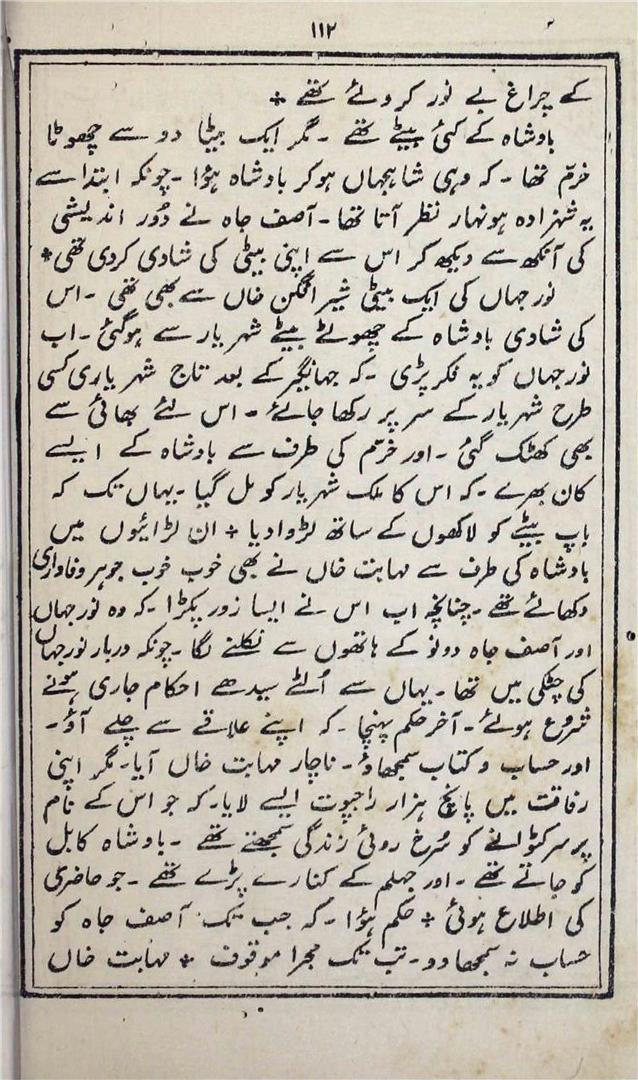 ۱۱۲
کے چراغ بے نور کر دئے تھے *
بادشاہ کے کئی بیٹے تھے - مگر ایک بیٹا دو سے چھوٹا
خرّم تھا - کہ وہی شاہجہاں ہوکر بادشاہ ہؤا - چونکہ ابتدا سے
یہ شہزادہ ہونہار نظر آتا تھا - آصف جاہ نے دُور اندیشی
کی آنکھ سے دیکھ کر اس سے اپنی بیٹی کی شادی کردی تھی *
نورجہاں کی ایک بیٹی شیر افگن خاں سے بھی تھی - اس
کی شادی بادشاہ کے چھوٹے بیٹے شہریار سے ہوگئی - اب
نورجہاں کو یہ فکر پڑی - کہ جہانگیر کے بعد تاج شہریاری کسی
طرح شہریار کے سر پر رکھا جائے - اس لئے بھائی سے
بھی کھٹک گئی - اور خرّم کی طرف سے بادشاہ کے ایسے
کان بھرے - کہ اس کا ملک شہریار کو مل گیا - یہاں تک کہ
باپ بیٹے کو لاکھوں کے ساتھ لڑوا دیا * ان لڑائیوں میں
بادشاہ کی طرف سے مہابت خاں نے بھی خوب خوب جوہر وفاداری
دکھائے تھے - چنانچہ اب اس نے ایسا زور پکڑا - کہ وہ نورجہاں
اور آصف جاہ دونو کے ہاتھوں سے نکلنے لگا - چونکہ دربار نورجہاں
کی چٹکی میں تھا - یہاں سے اُلٹے سیدھے احکام جاری ہونے
شروع ہوئے - آخر حکم پہنچا - کہ اپنے علاقے سے چلے آؤ -
اور حساب و کتاب سمجھاؤ - ناچار مہابت خاں آیا - مگر اپنی
رفاقت میں پانچ ہزار راجپوت ایسے لایا - کہ جو اس کے نام
پر سر کٹوانے کو سُرخ روئی زندگی سمجھتے تھے - بادشاہ کابل
کو جاتے تھے - اور جہلم کے کنارے پڑے تھے - جو حاضری
کی اطلاع ہوئی * حکم ہؤا - کہ جب تک آصف جاہ کو
حساب نہ سمجھا دو - تب تک مجرا موقوف * مہابت خاں